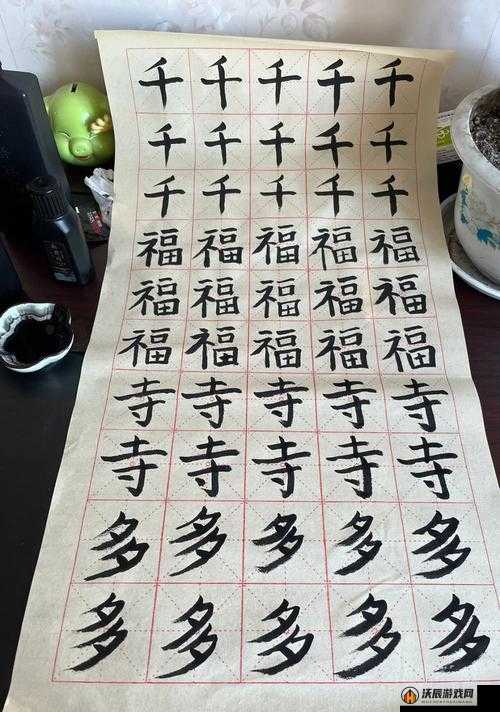 千千千千千
千千千千千
千千千千千
福福福福福
福福福福福
福福福福福
寺寺寺寺寺
寺寺寺寺寺
多多多多多
多多多多多
沃辰游戏网